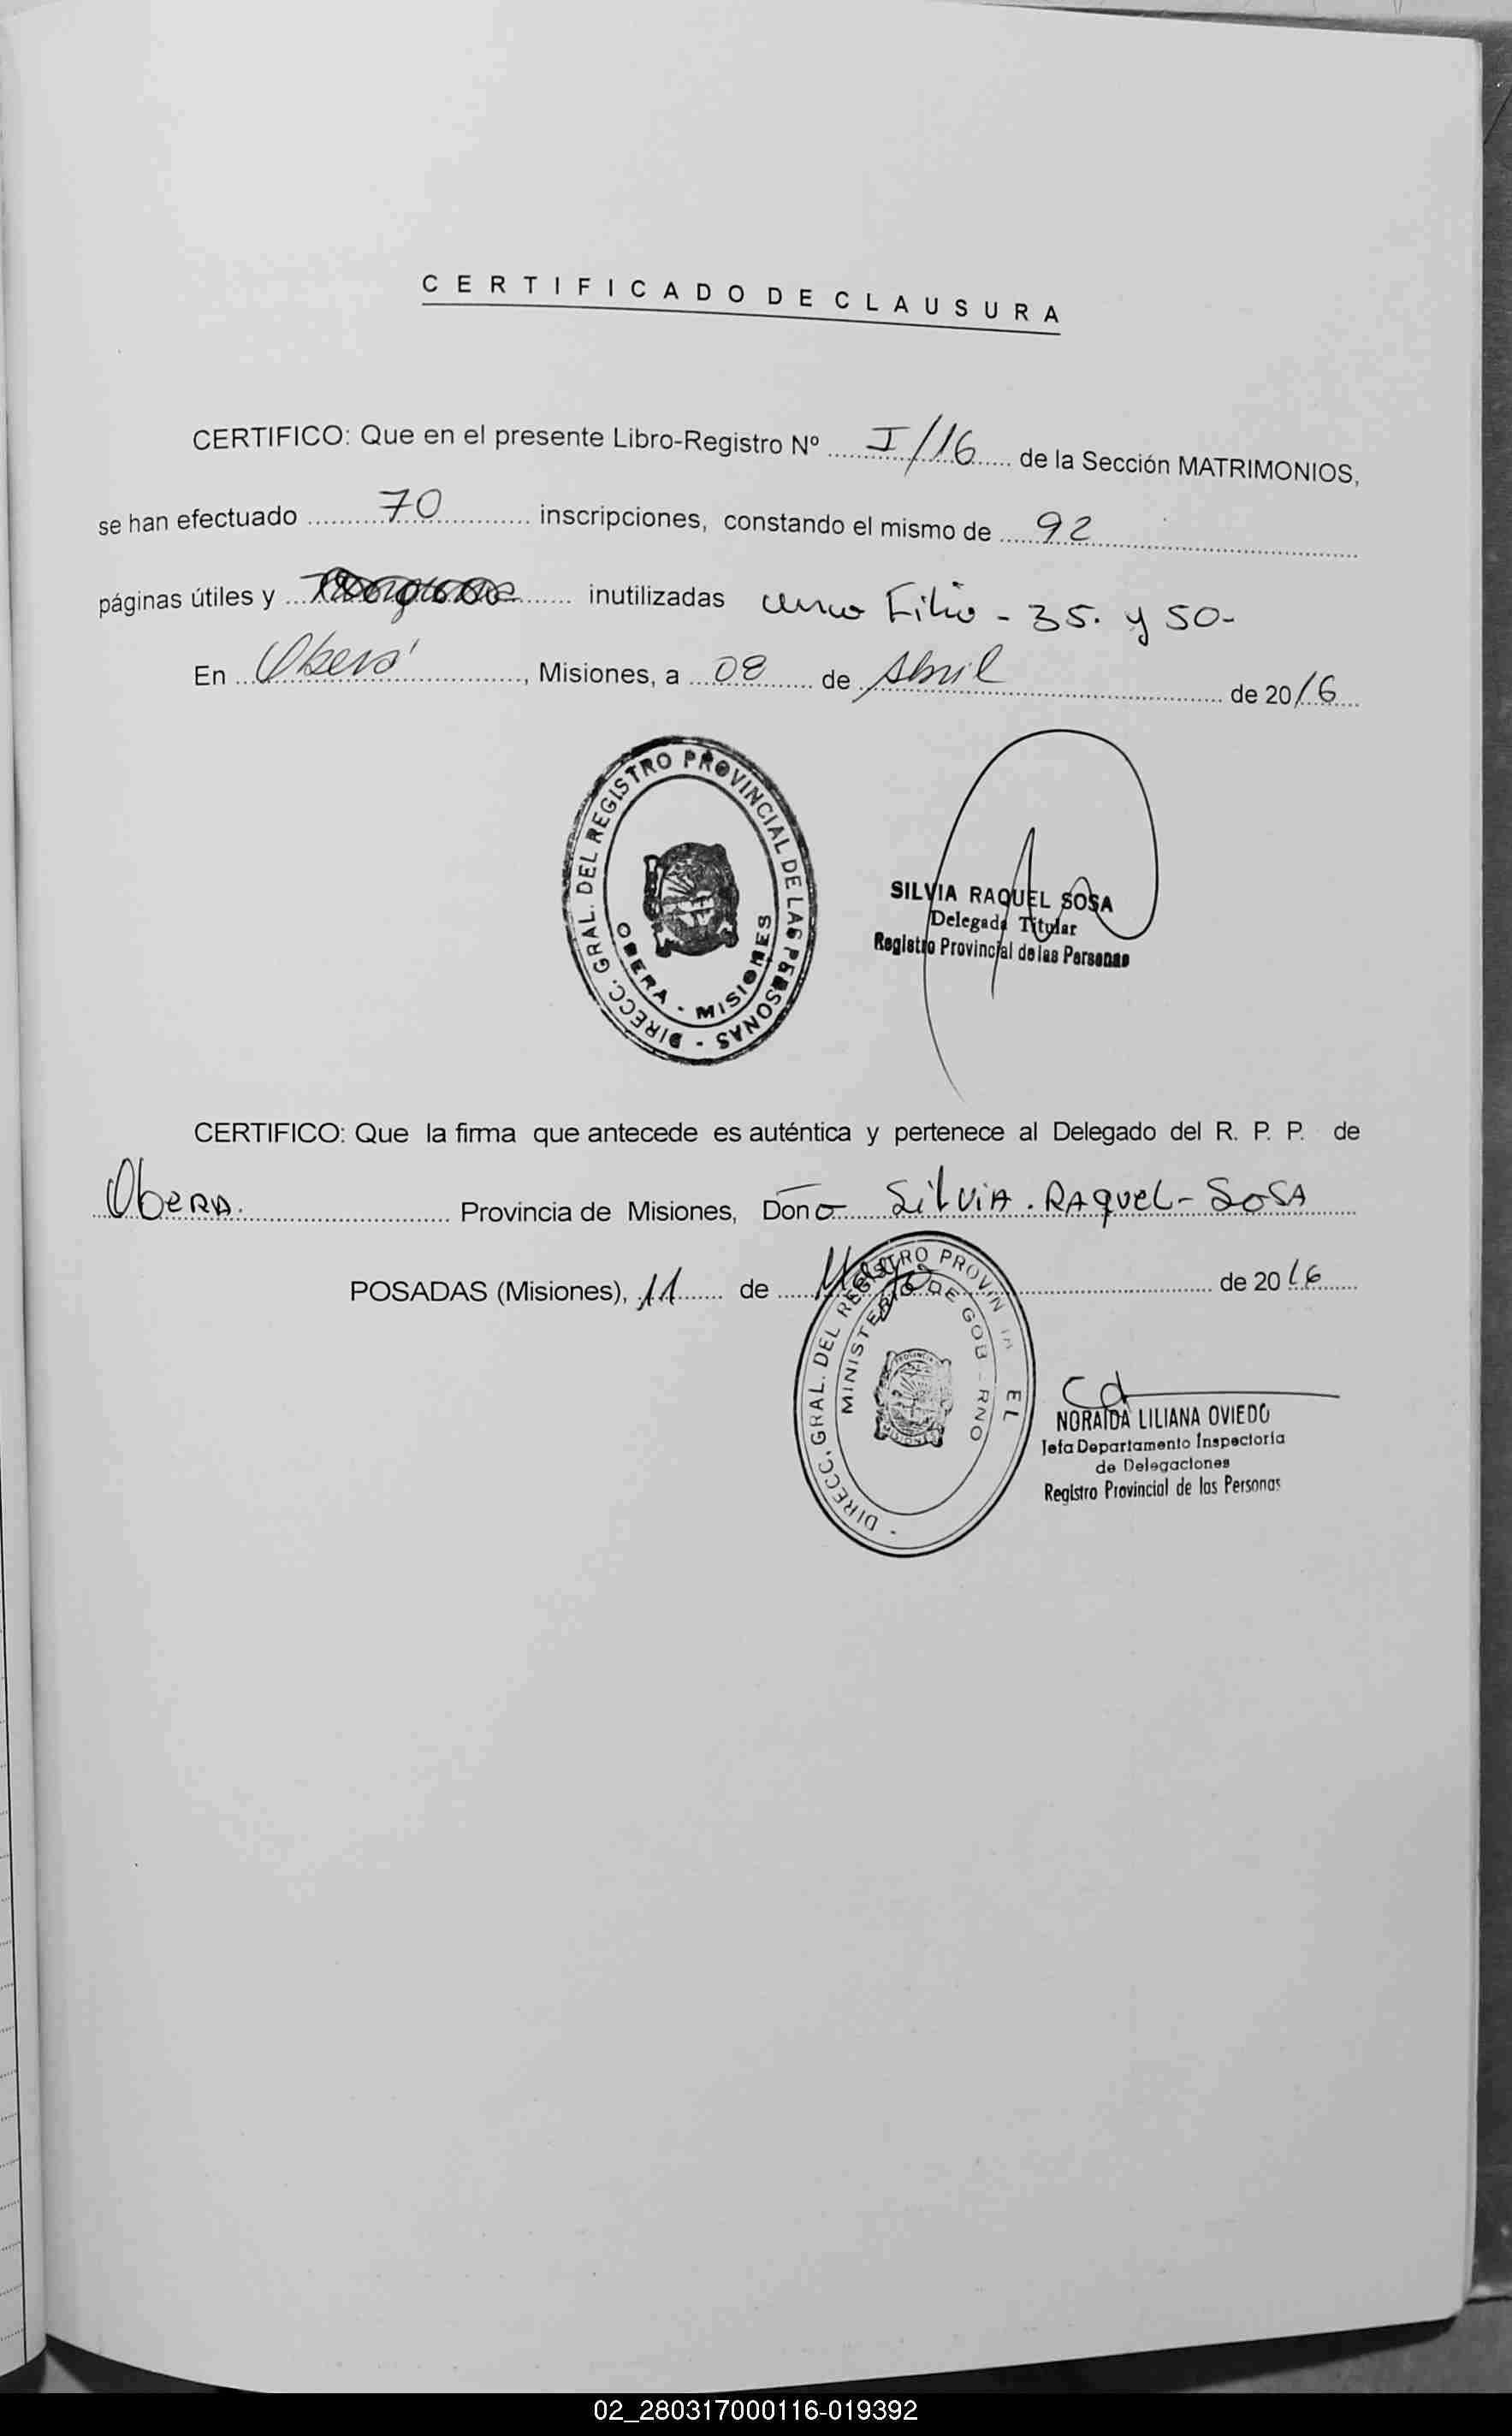 CERTIFICADO DE CLAUSURA
CERTIFICO: Que en el presente Libro-Registro Nº I/16 de la Sección MATRIMONIOS,
se han efectuado 70 inscripciones, constando el mismo de 92
páginas útiles y inutilizadas - 35. y 50-
En Oberá, Misiones, a 08 de Abril de 2016
DIRECC. GRAL. DEL REGISTRO PROVINCIAL DE LAS PERSONAS -
OBERA - MISIONES
SILVIA RAQUEL SOSA
Delegada Titular
Registro Provincial de las Personas
CERTIFICO: Que la firma que antecede es auténtica y pertenece al Delegado del R. P. P. de
Obera. Provincia de Misiones, Doña Silvia. Raquel - Sosa
POSADAS (Misiones), 11 de de 2016
DIRECC, GRAL. DEL REGISTRO PROVIN EL -
MINISTERIO DE GOB RNO
NORAIDA LILIANA OVIEDO
Jefa Departamento Inspectoria
de Delegaciones
Registro Provincial de las Personas
02_280317000116-019392